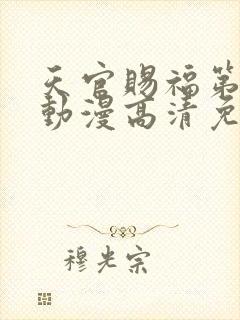 天官賜福第
動漫高清免
穆光宗